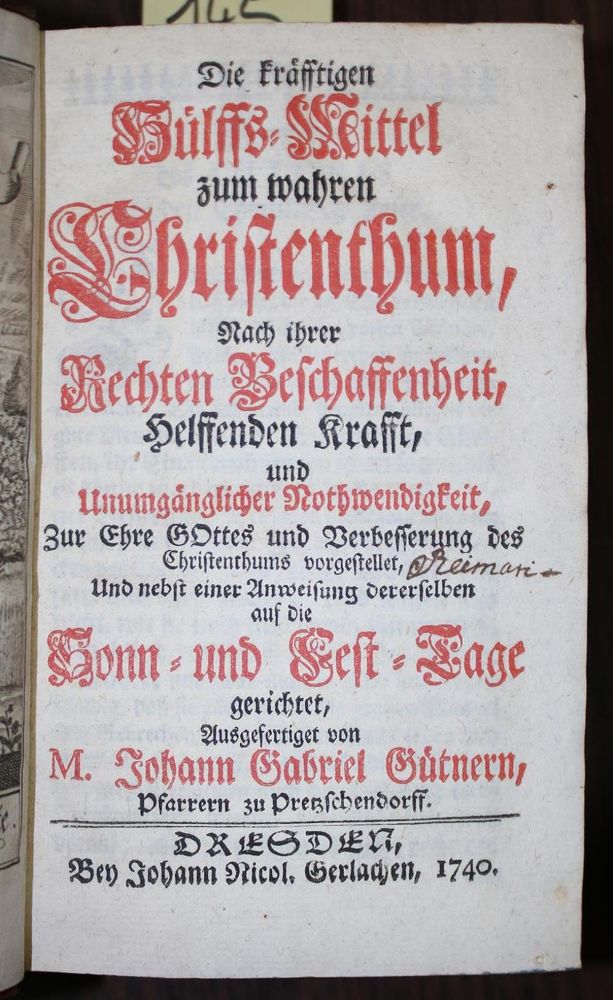 145
Die kräfftigen
Hülffs-Mittel
zum wahren
Christenthum,
Nach ihrer
Rechten Beschaffenheit,
Helffenden Krafft,
und
Unumgänglicher Nothwendigkeit,
Zur Ehre GOttes und Verbesserung des
Christenthums vorgestellet, Reimari
Und nebst einer Anweisung dererselben
auf die
Sonn- und Fest-Tage
gerichtet,
Ausgefertiget von
M. Johann Gabriel Gütnern,
Pfarrern zu Pretzschendorff.
DRESDEN,
Bey Johann Nicol. Gerlachen, 1740.